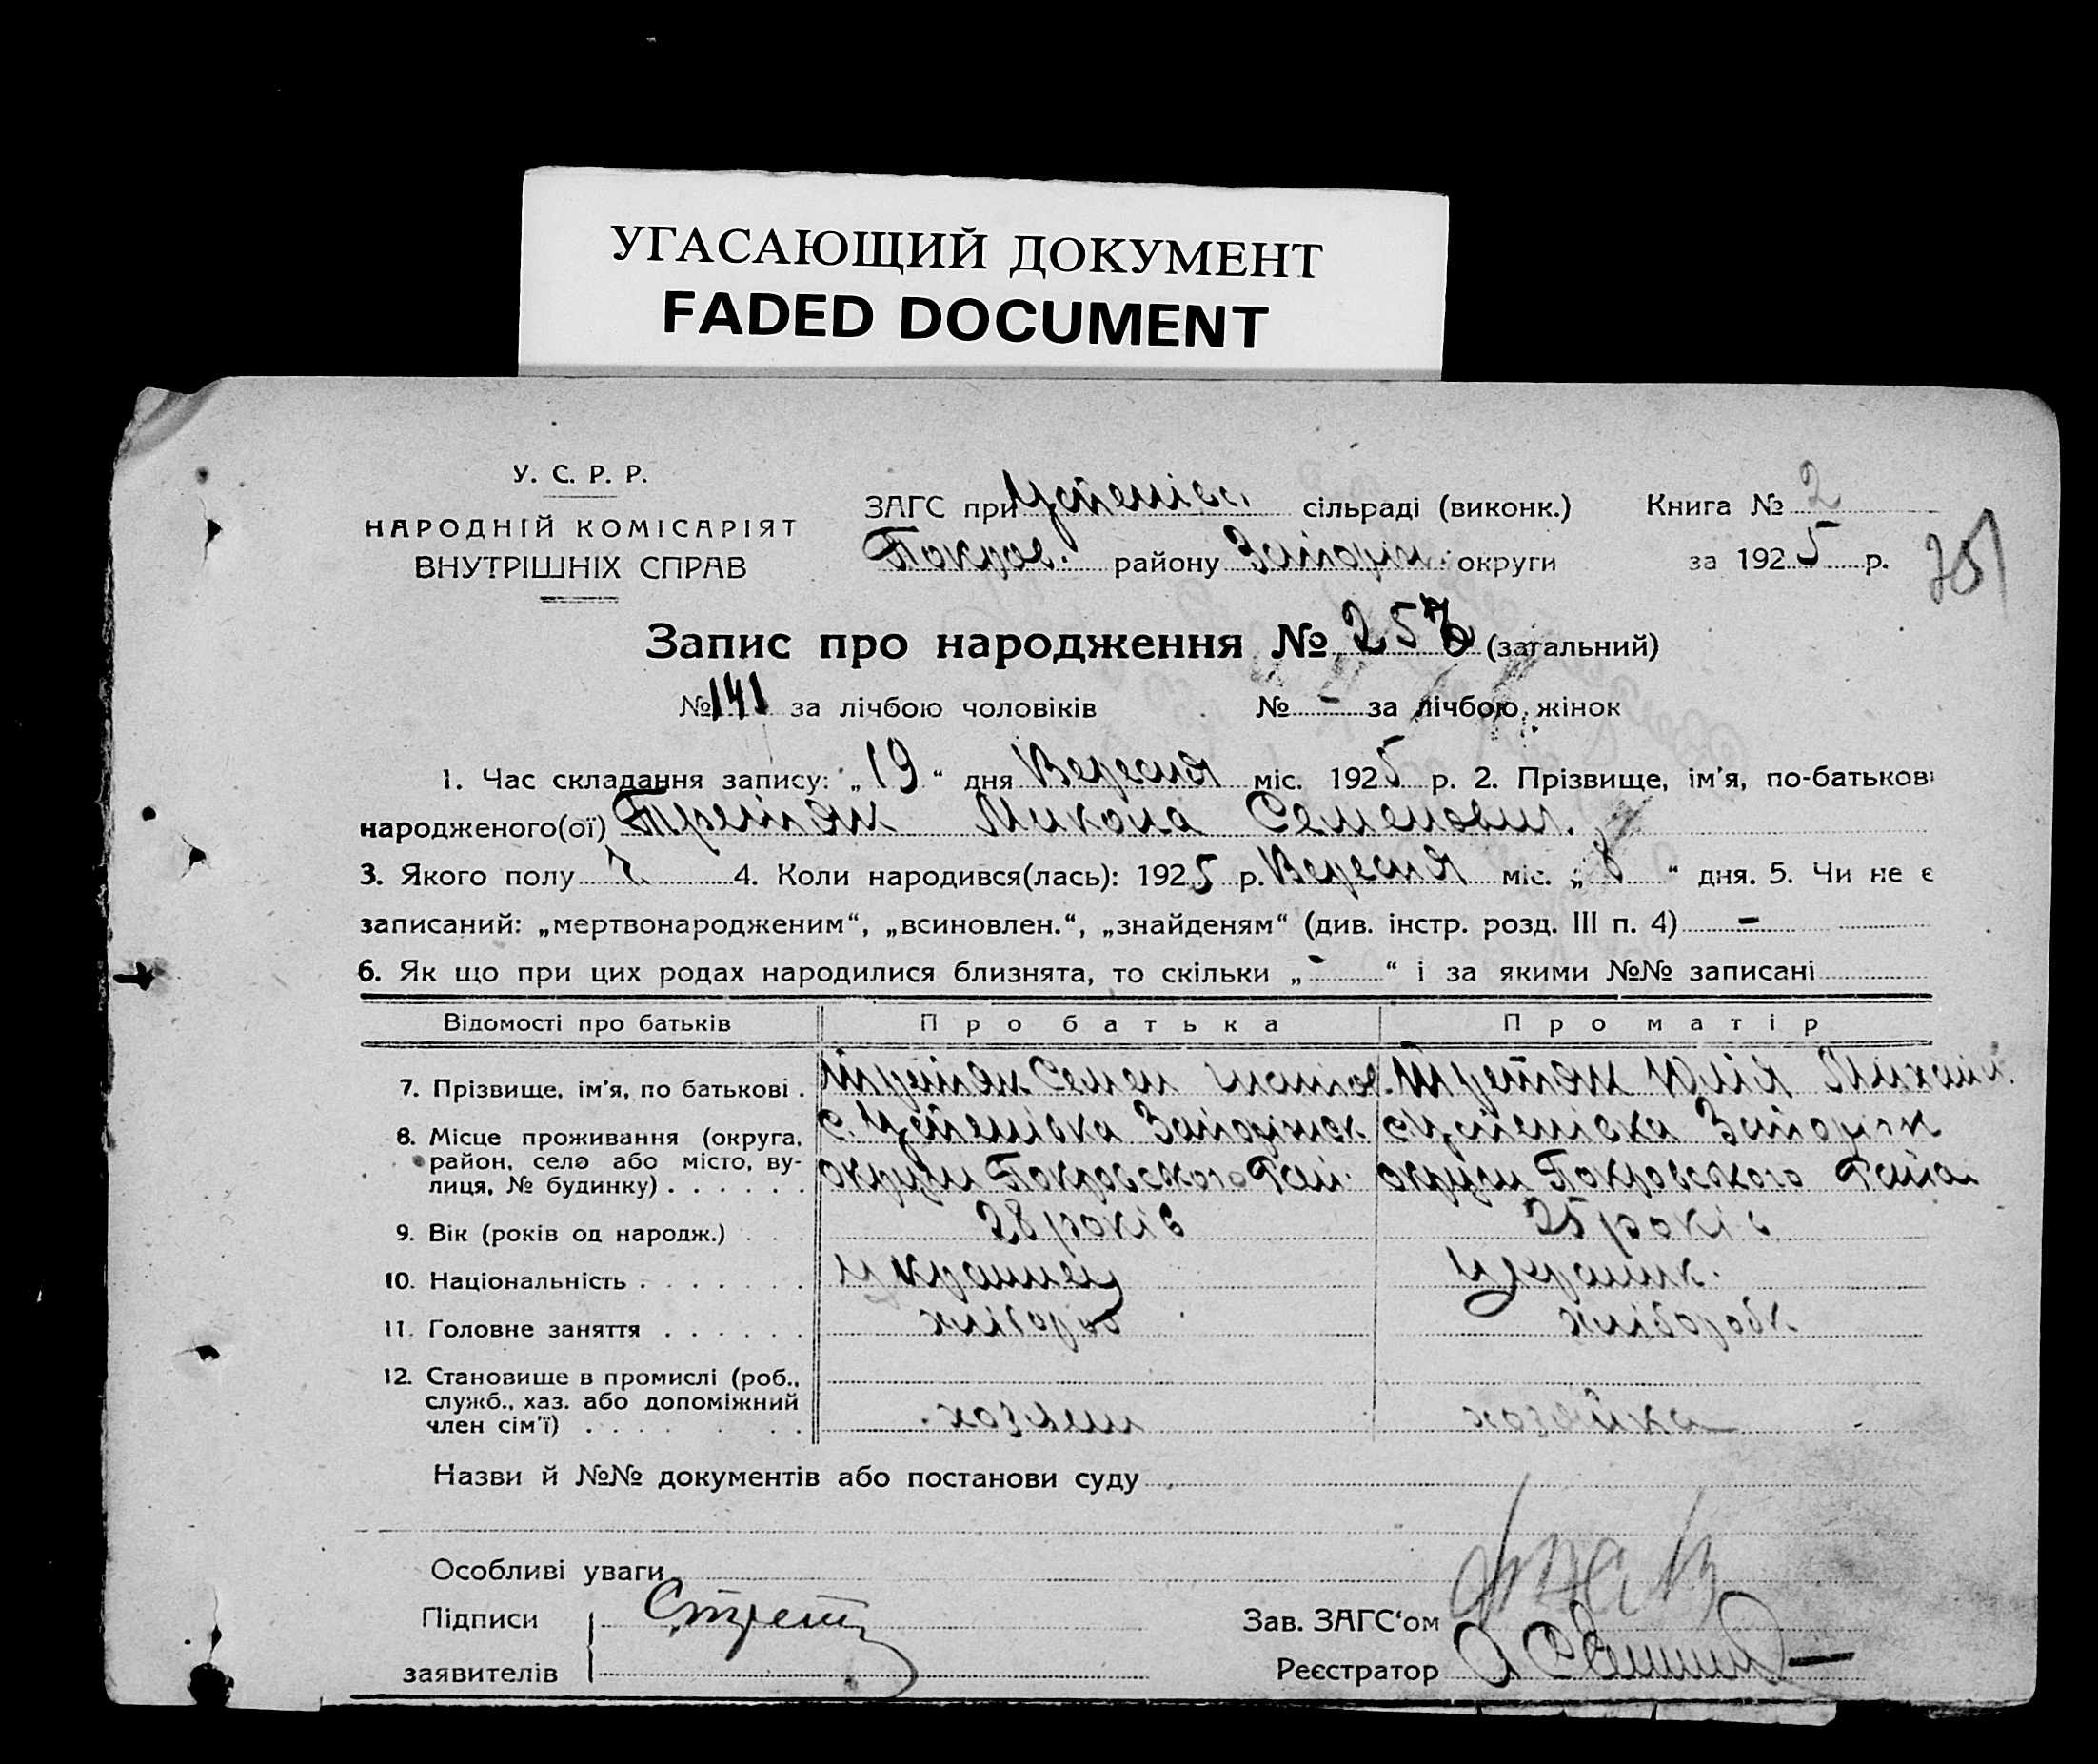 УГАСАЮЩИЙ ДОКУМЕНТ
FADED DOCUMENT
У. С. Р. Р.
НАРОДНІЙ КОМІСАРІЯТ
ВНУТРІШНІХ СПРАВ
ЗАГС при сільраді (виконк.)
Покров. району Запоріж. округи
Книга № 2
за 1925 р.
Запис про народження № 257 (загальний)
№ 141 за лічбою чоловіків № - за лічбою жінок
1. Час складання запису: „19“ дня Вересня міс. 1925 р. 2. Прізвище, ім'я, по-батькові
народженого(ої) Микола Семенович.
3. Якого полу ч. 4. Коли народився(лась): 1925 р. Вересня міс. „8“ дня. 5. Чи не є
записаний: „мертвонародженим“, „всиновлен.“, „знайденям“ (див. інстр. розд. III п. 4) -
6. Як що при цих родах народилися близнята, то скільки „-“ і за якими №№ записані
Відомості про батьків Про батька Про матір
7. Прізвище, ім'я, по батькові . Третяк Семен Третяк Юлія Михайл.
8. Місце проживання (округа, район, село або місто, вулиця, № будинку) . . . . . .
округи Покровського Рай. округи Покровського Району
9. Вік (років од народж.) . . . 28 років 25 років
10. Національність . . . . . . . Украинец Украинк.
11. Головне заняття . . . . . . хлібороб хлібороб
12. Становище в промислі (роб., служб., хаз. або допоміжний член сім'ї) . . . . хозяин хозяйка
Назви й №№ документів або постанови суду
Особливі уваги
Підписи
заявителів
Зав. ЗАГС'ом
Реєстратор